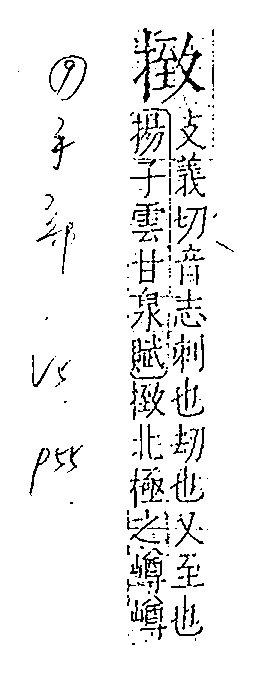 㨖
支義切音志刺也刼也又至也
揚子雲甘泉賦㨖北極之嶟嶟
⑨手部.V5.P55.